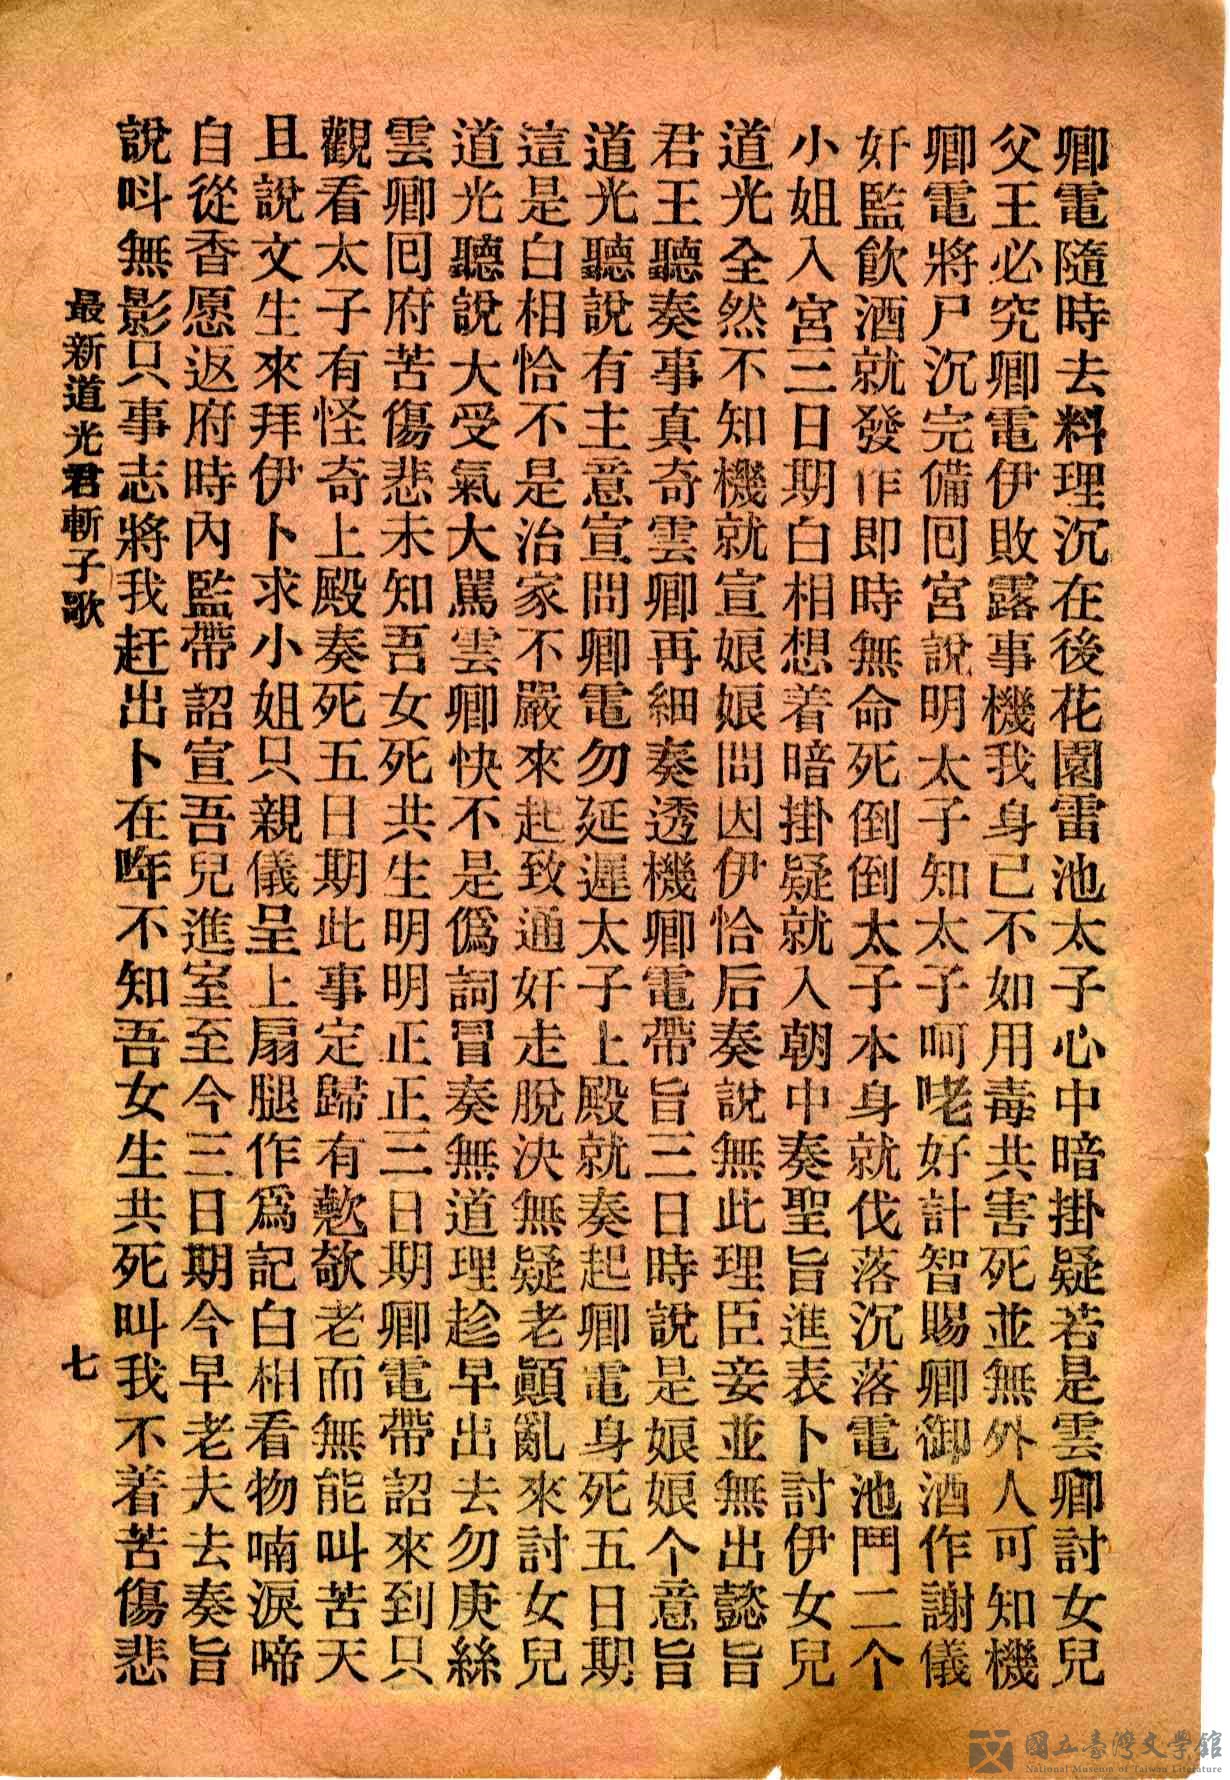 卿電隨時去料理沉在後花園雷池太子心中暗掛疑若是雲卿討女兒
父王必究卿電伊敗露事機我身已不如用毒共害死並無外人可知機
卿電將尸沉完備囘宮說明太子知太子呵咾好計智賜卿御酒作謝儀
奸監飲酒就發作即時無命死倒倒太子本身就伐落沉落電池鬥二个
小姐入宮三日期白相想着暗掛疑就入朝中奏聖旨進表卜討伊女兒
道光全然不知機就宣娘娘問因伊恰后奏說無此理臣妾並無出懿旨
君王聽奏事真奇雲卿再細奏透機卿電帶旨三日時說是娘娘个意旨
道光聽說有主意宣問卿電勿延遲太子上殿就奏起卿電身死五日期
這是白相恰不是治家不嚴來起致通奸走脫決無疑老顛亂來討女兒
道光聽說大受氣大罵雲卿快不是僞詞冒奏無道理趁早出去勿庚絲
雲卿囘府苦傷悲未知吾女死共生明明正正三日期卿電帶詔來到只
觀看太子有怪奇上殿奏死五日期此事定歸有虧欹老而無能叫苦天
且說文生來拜伊卜求小姐只親儀呈上扇腿作爲記白相看物喃淚啼
自從香愿返府時內監帶詔宣吾兒進室至今三日期今早老夫去奏旨
說呌無影只事志將我赶出卜在哖不知吾女生共死叫我不着苦傷悲
最新道光君斬子歌
七
國立臺灣文學館
National Museum of Taiwan Literature